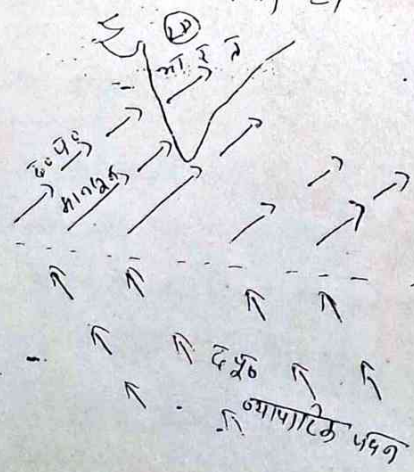 LP
भारत
द० प०
मानसून
द० पू०
व्यापारिक पवन